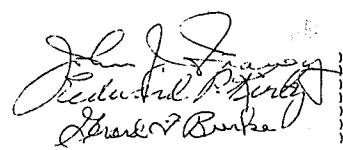 John J. Franey
Frederick P. Kirby
Gerard V Burke